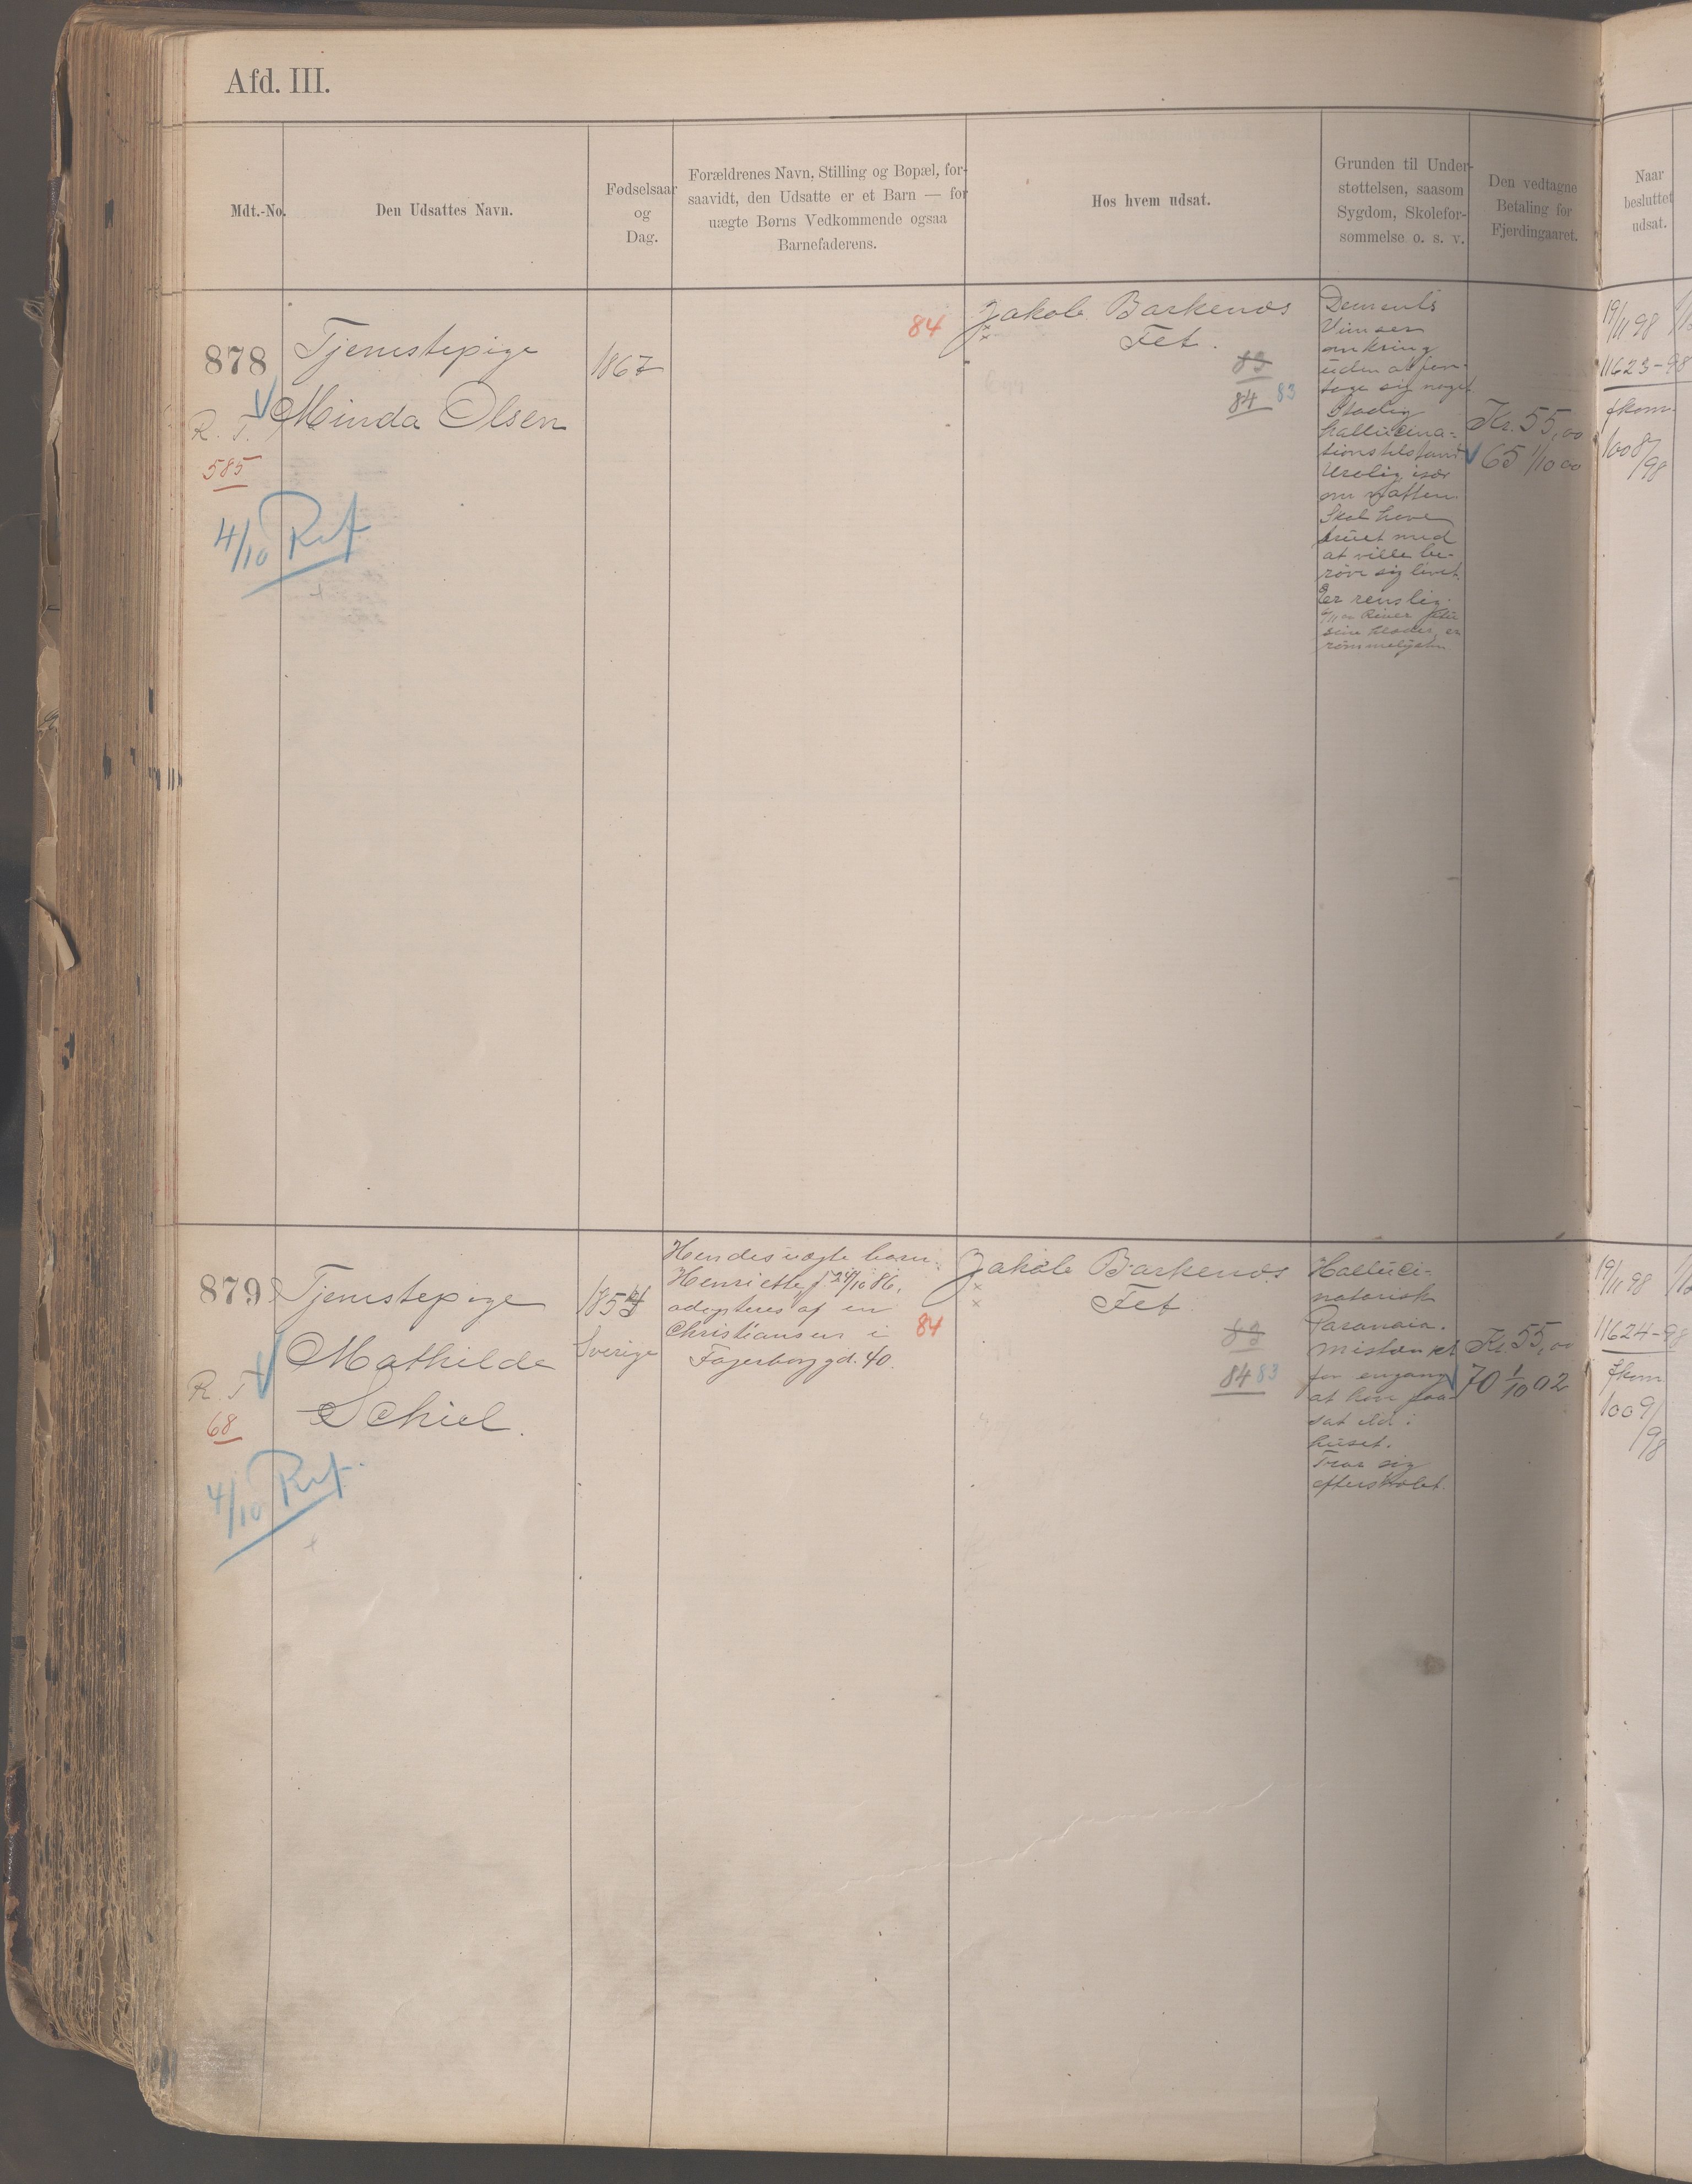 Afd. III.
Mdt.-No.
Den Udsattes Navn.
Fødselsaar
og
Dag.
Forældrenes Navn, Stilling og Bopæl, for-
saavidt, den Udsatte er et Barn — for
uægte Børns Vedkommende ogsaa
Barnefaderens.
Hos hvem udsat.
Grunden til Under-
støttelsen, saasom
Sygdom, Skolefor-
sømmelse o. s. v.
Den vedtagne
Betaling for
Fjerdingaaret.
Naar
besluttet
udsat.
878
R. T.
585
4/10 Ret
Tjenestepige
Minda Olsen
1867
84
Jakob Barkenæs
Fet.
83
84 83
Dements
Vimser
omkring
uden at fore-
tage sig noget
Stadig
hallucina-
tionstilstand
Urolig især
om natten.
Skal have
truet med
at ville be-
røve sig livet.
Er renslig.
sine klæder, er
Kr. 55,00
65 1/10 00
19/11 98
11623-98
fkom.
1008/98
879
R. T
68
4/10 Ret.
Tjenestepige
Mathilde
Schiel.
1854
Sverige
Hendes uægte barn
Henriette f 24/10 86,
adopteres af en
Christiansen i
Fagerborggd. 40.
84
Jakob Barkenæs
Fet
83
84 83
Halluci-
natorisk
Paranoia.
mistænkt
for engang
at have paa-
sat ild i
huset.
Tror sig
efterstræbt.
Kr. 55,00
70 1/10 02
19/11 98
11624-98
fkom
1009/98